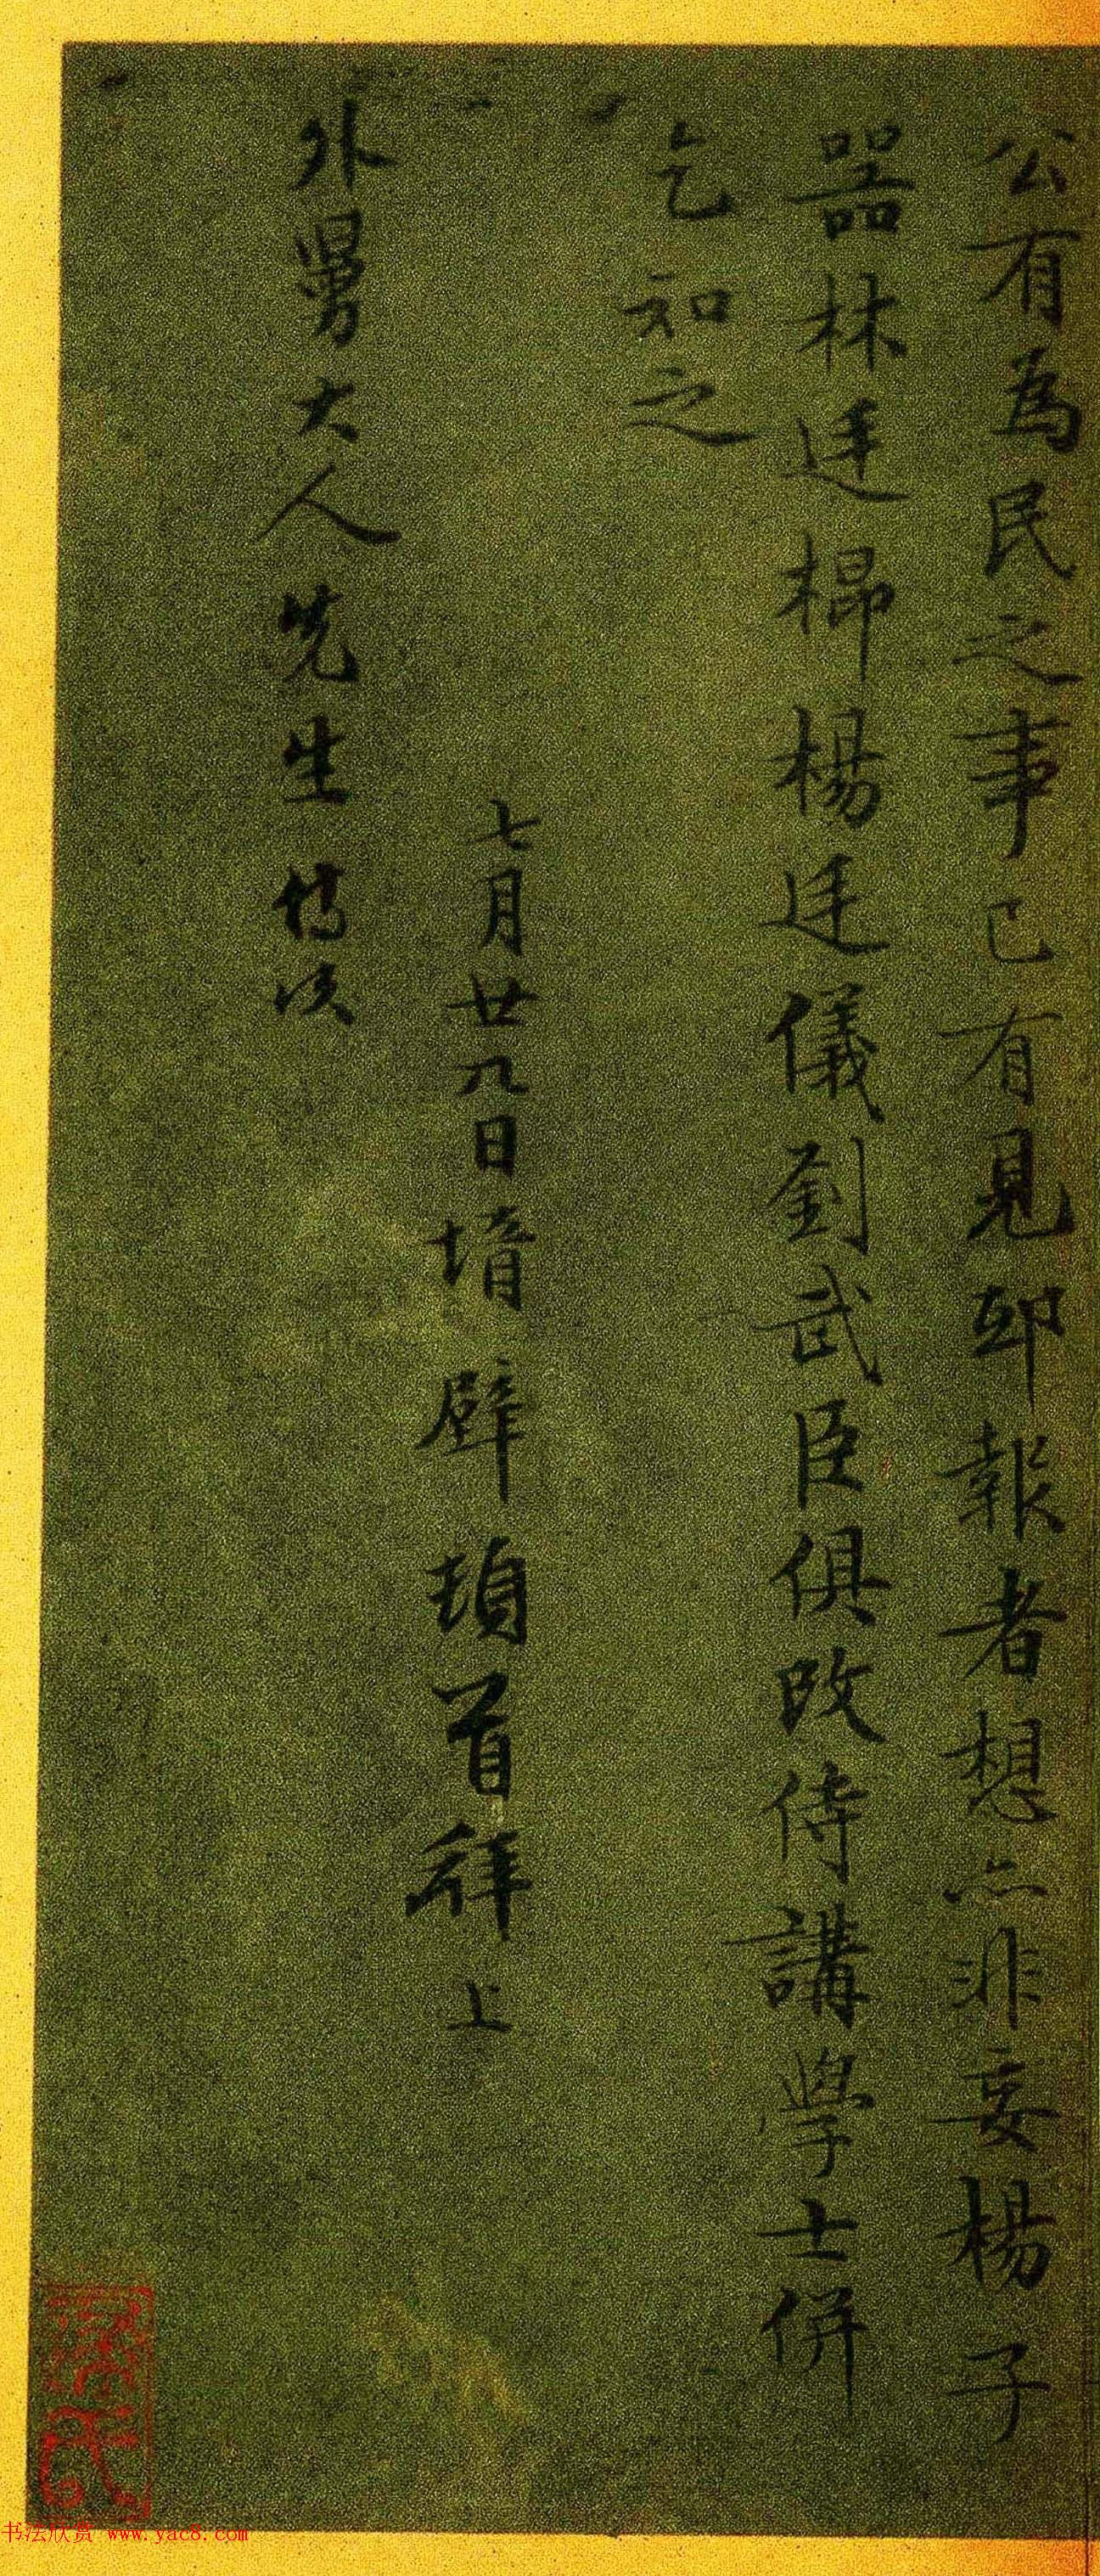 公有為民之事已有見邸報者想亦非妄楊子
器林廷㭿楊廷儀劉武臣俱改侍講學士併
乞知之
七月廿八日壻璧頓首拜上
外舅大人先生侍次
书法欣赏 www.yac8.com